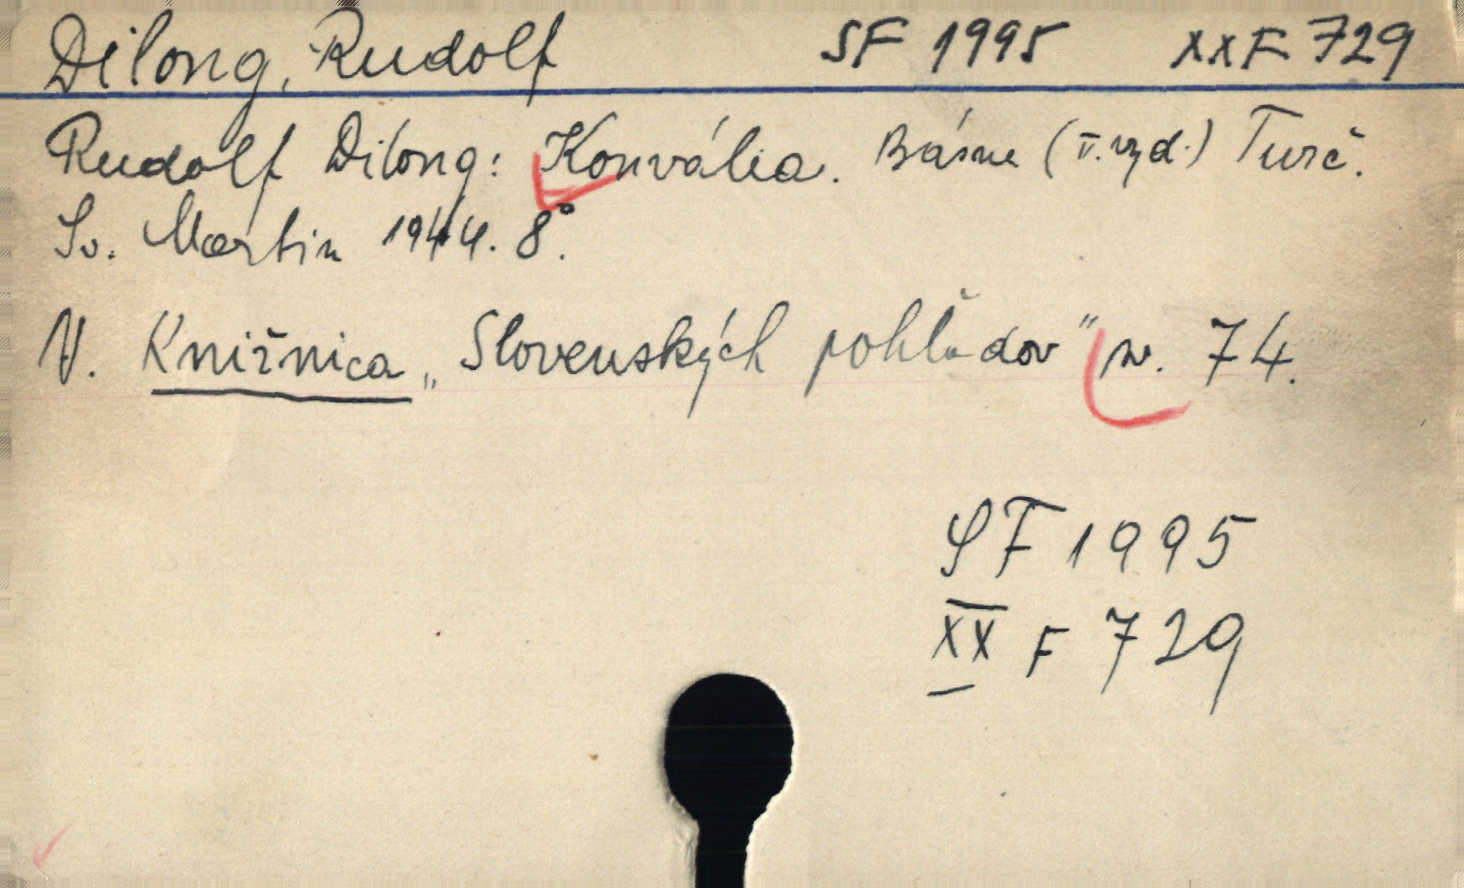 Dilong, Rudolf SF 1995 XXF 729
Rudolf Dilong: Konvália. Básne (I. vyd.) Turč.
Sv. Martin 1944. 8°.
V. Knižnica „Slovenských pohľadov" 74.
SF 1995
XX F 729